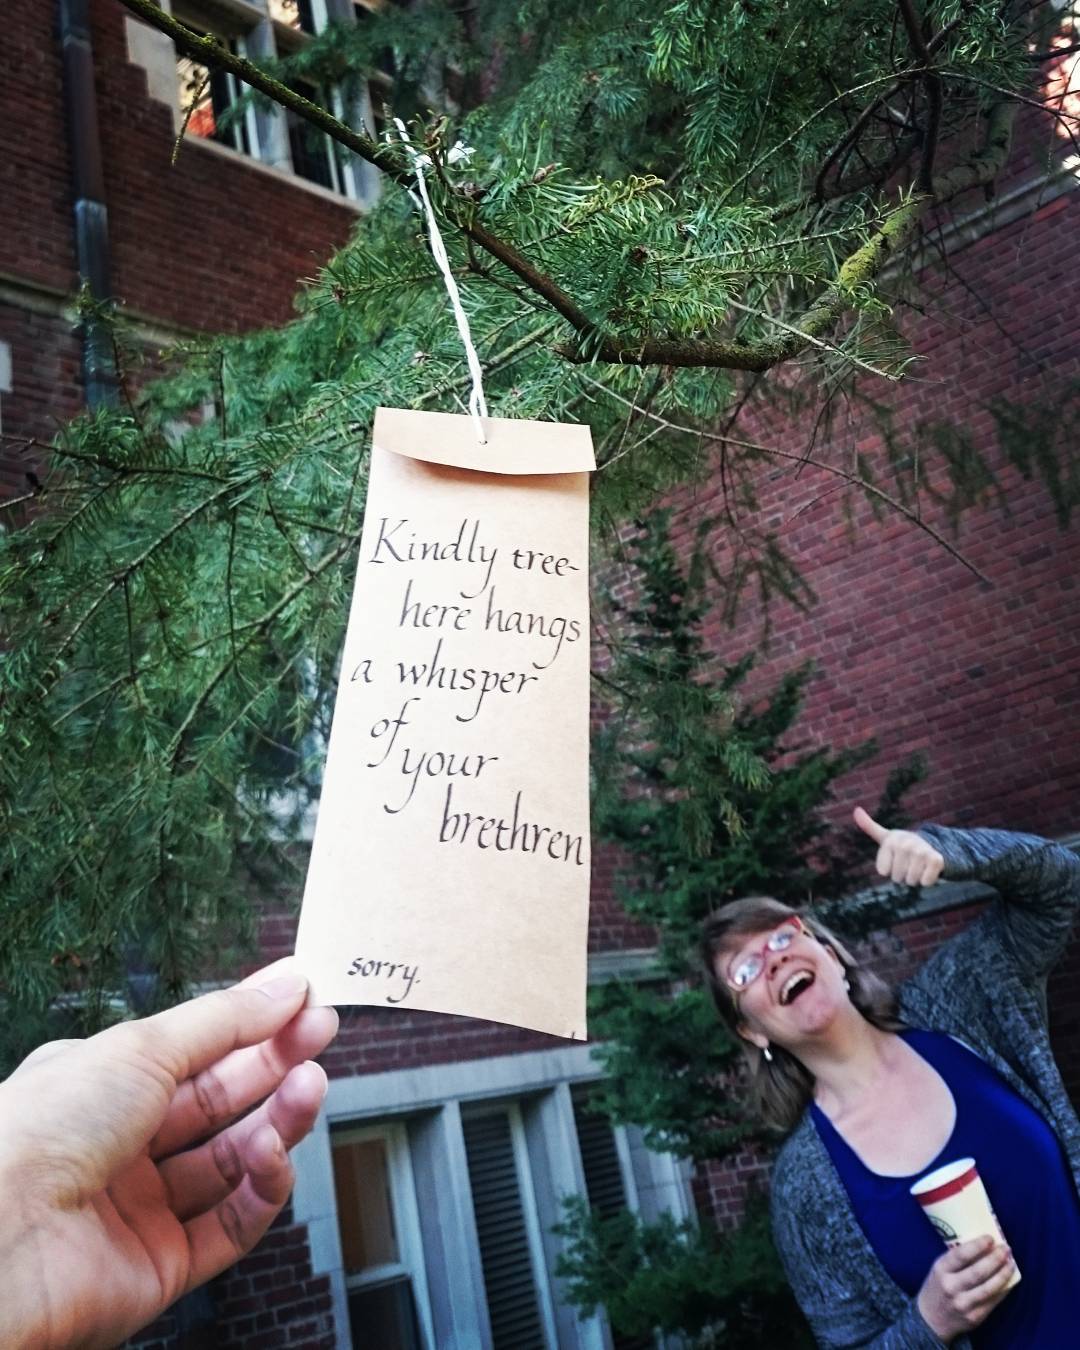 Kindly tree-
here hangs
a whisper
of
your
brethren
sorry.